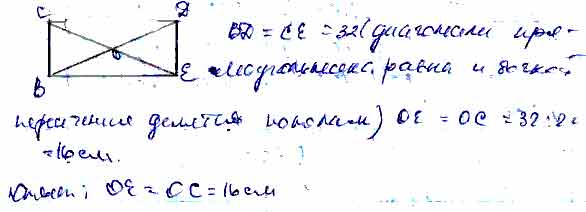 C D
BD = CE = 32 (диагонали пря-
O
моугольника равны и точкой
B E
пересечения делятся пополам) OE = OC = 32:2=
=16см.
Ответ: OE = OC = 16см